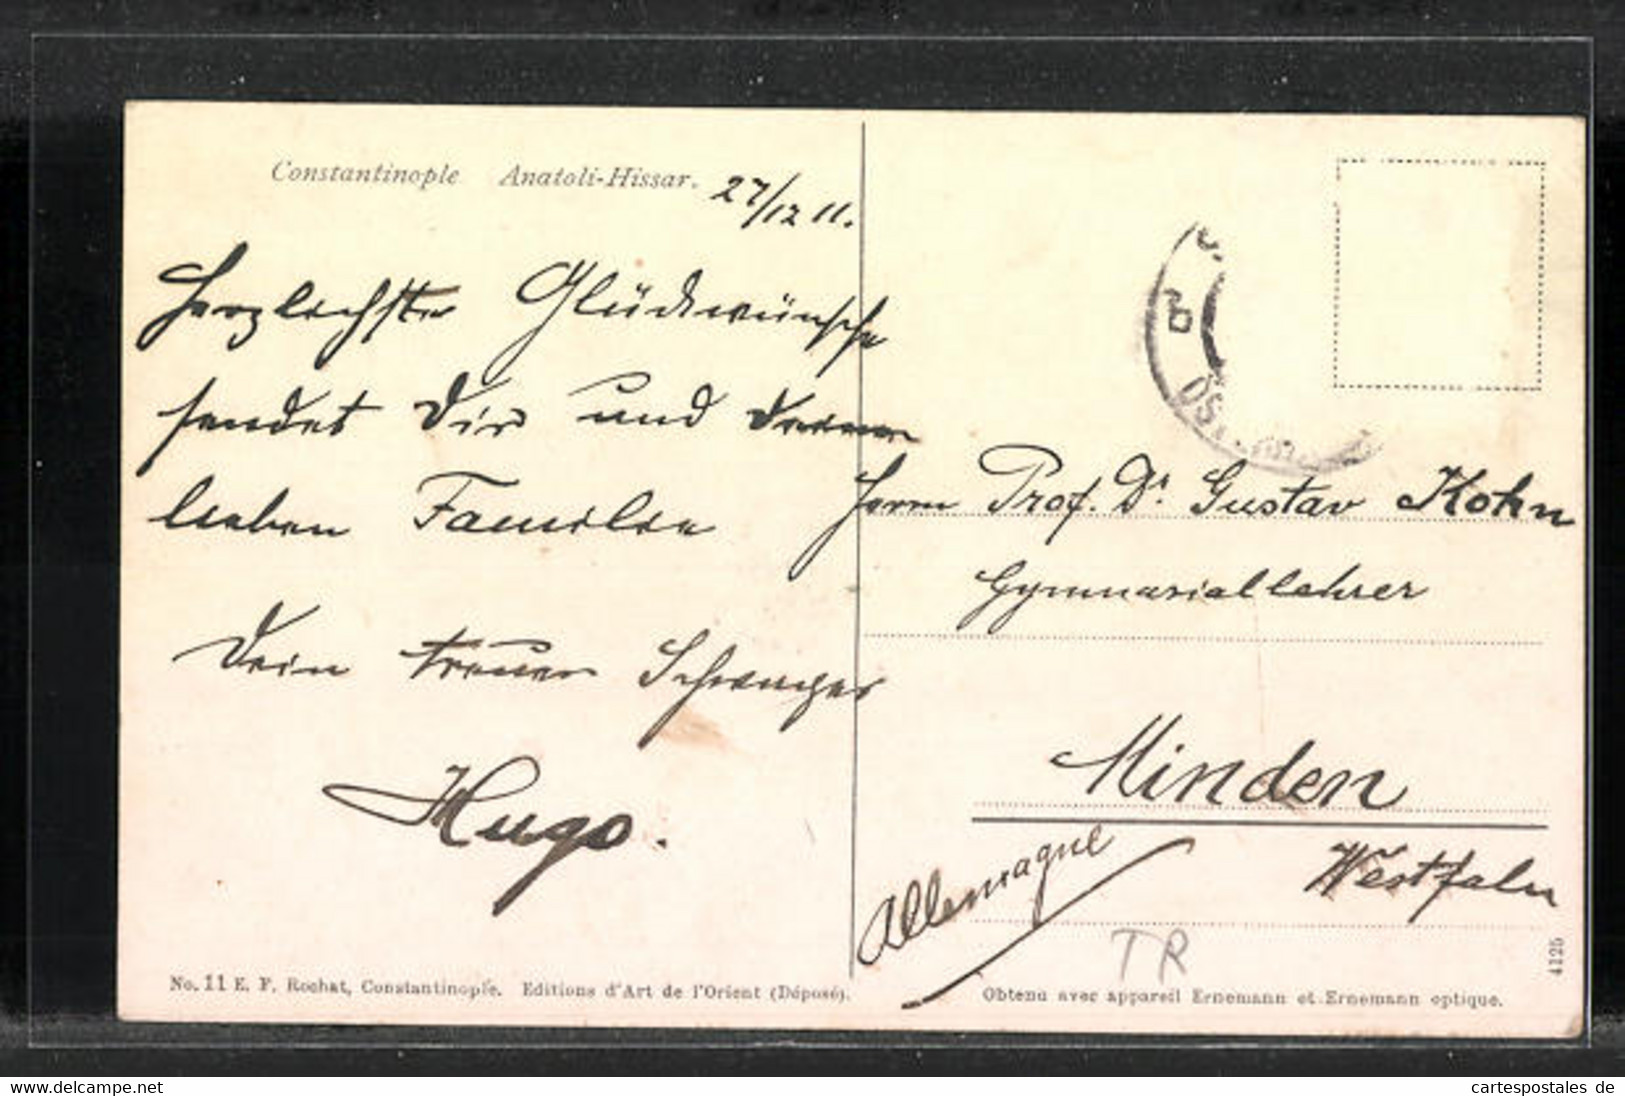 Constantinople Anatoli-Hissar.
27/12 11.
Herzlichste Glückwünsche
sendet Dir und Deiner
lieben Familie
Dein treuer Schwager
Hugo.
Herrn Prof. Dr. Gustav Kohn
Gymnasiallehrer
Minden
Westfalen
Allemagne
TR
4125
No. 11 E. F. Rochat, Constantinople. Editions d'Art de l'Orient (Déposé).
Obtenu avec appareil Ernemann et Ernemann optique.
www.delcampe.net
cartespostales de